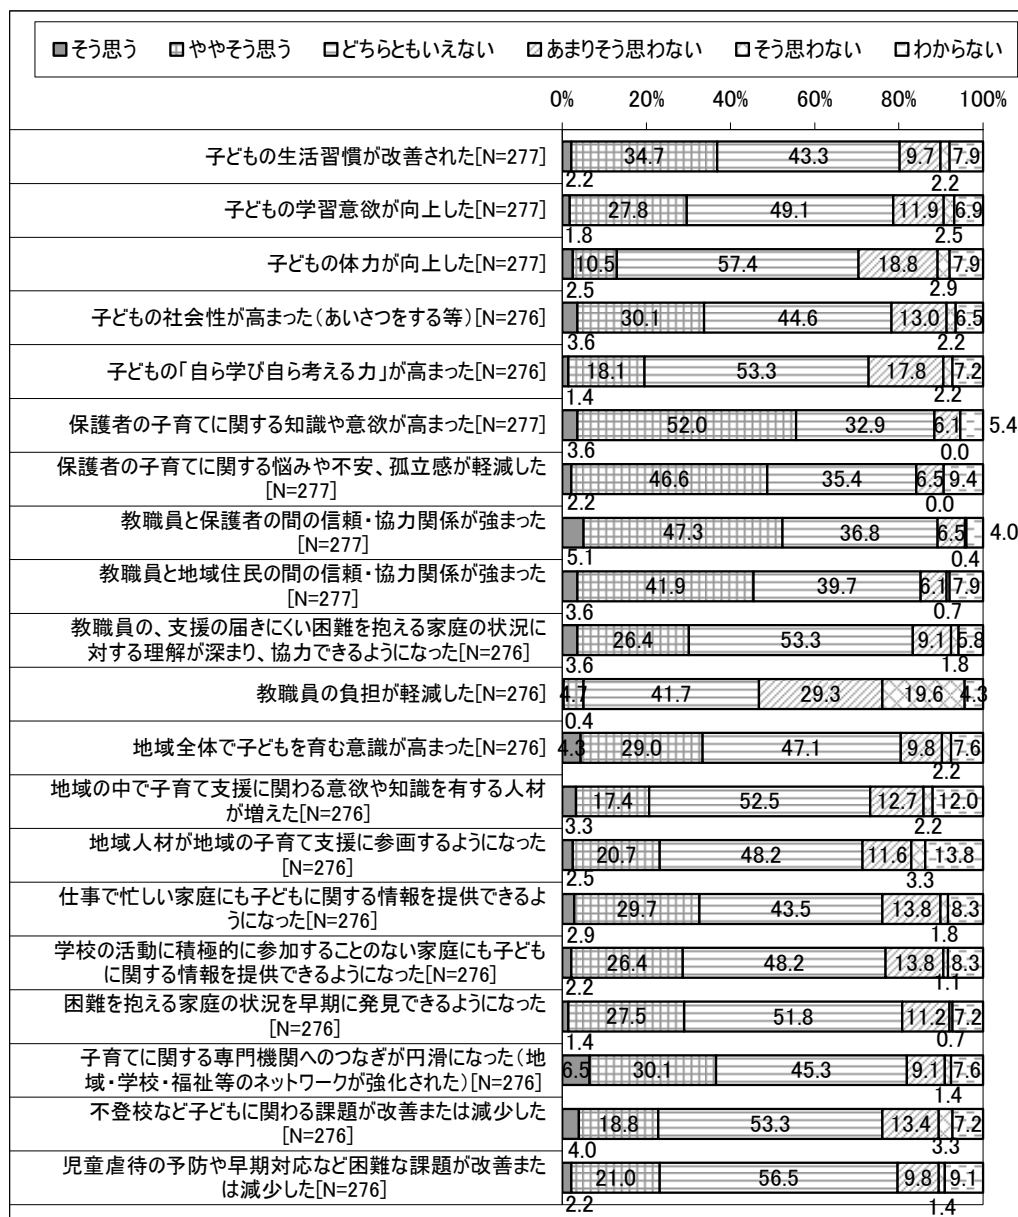 そう思う ややそう思う どちらともいえない あまりそう思わない そう思わない わからない
0% 20% 40% 60% 80% 100%
子どもの生活習慣が改善された[N=277]
34.7 43.3 9.7 7.9
2.2 2.2
子どもの学習意欲が向上した[N=277]
27.8 49.1 11.9 6.9
1.8 2.5
子どもの体力が向上した[N=277]
10.5 57.4 18.8 7.9
2.5 2.9
子どもの社会性が高まった(あいさつをする等)[N=276]
30.1 44.6 13.0 6.5
3.6 2.2
子どもの「自ら学び自ら考える力」が高まった[N=276]
18.1 53.3 17.8 7.2
1.4 2.2
保護者の子育てに関する知識や意欲が高まった[N=277]
52.0 32.9 6.1 5.4
3.6 0.0
保護者の子育てに関する悩みや不安、孤立感が軽減した
[N=277]
46.6 35.4 6.5 9.4
2.2 0.0
教職員と保護者の間の信頼・協力関係が強まった
[N=277]
47.3 36.8 6.5 4.0
5.1 0.4
教職員と地域住民の間の信頼・協力関係が強まった
[N=277]
41.9 39.7 6.1 7.9
3.6 0.7
教職員の、支援の届きにくい困難を抱える家庭の状況に
対する理解が深まり、協力できるようになった[N=276]
26.4 53.3 9.1 5.8
3.6 1.8
教職員の負担が軽減した[N=276]
4.7 41.7 29.3 19.6 4.3
0.4
地域全体で子どもを育む意識が高まった[N=276]
4.3 29.0 47.1 9.8 7.6
2.2
地域の中で子育て支援に関わる意欲や知識を有する人材
が増えた[N=276]
17.4 52.5 12.7 12.0
3.3 2.2
地域人材が地域の子育て支援に参画するようになった
[N=276]
20.7 48.2 11.6 13.8
2.5 3.3
仕事で忙しい家庭にも子どもに関する情報を提供できるよ
うになった[N=276]
29.7 43.5 13.8 8.3
2.9 1.8
学校の活動に積極的に参加することのない家庭にも子ども
に関する情報を提供できるようになった[N=276]
26.4 48.2 13.8 8.3
2.2 1.1
困難を抱える家庭の状況を早期に発見できるようになった
[N=276]
27.5 51.8 11.2 7.2
1.4 0.7
子育てに関する専門機関へのつなぎが円滑になった(地
域・学校・福祉等のネットワークが強化された)[N=276]
6.5 30.1 45.3 9.1 7.6
1.4
不登校など子どもに関わる課題が改善または減少した
[N=276]
18.8 53.3 13.4 7.2
4.0 3.3
児童虐待の予防や早期対応など困難な課題が改善また
は減少した[N=276]
21.0 56.5 9.8 9.1
2.2 1.4